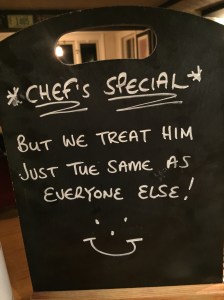 *CHEF'S SPECIAL*
BUT WE TREAT HIM
JUST THE SAME AS
EVERYONE ELSE!